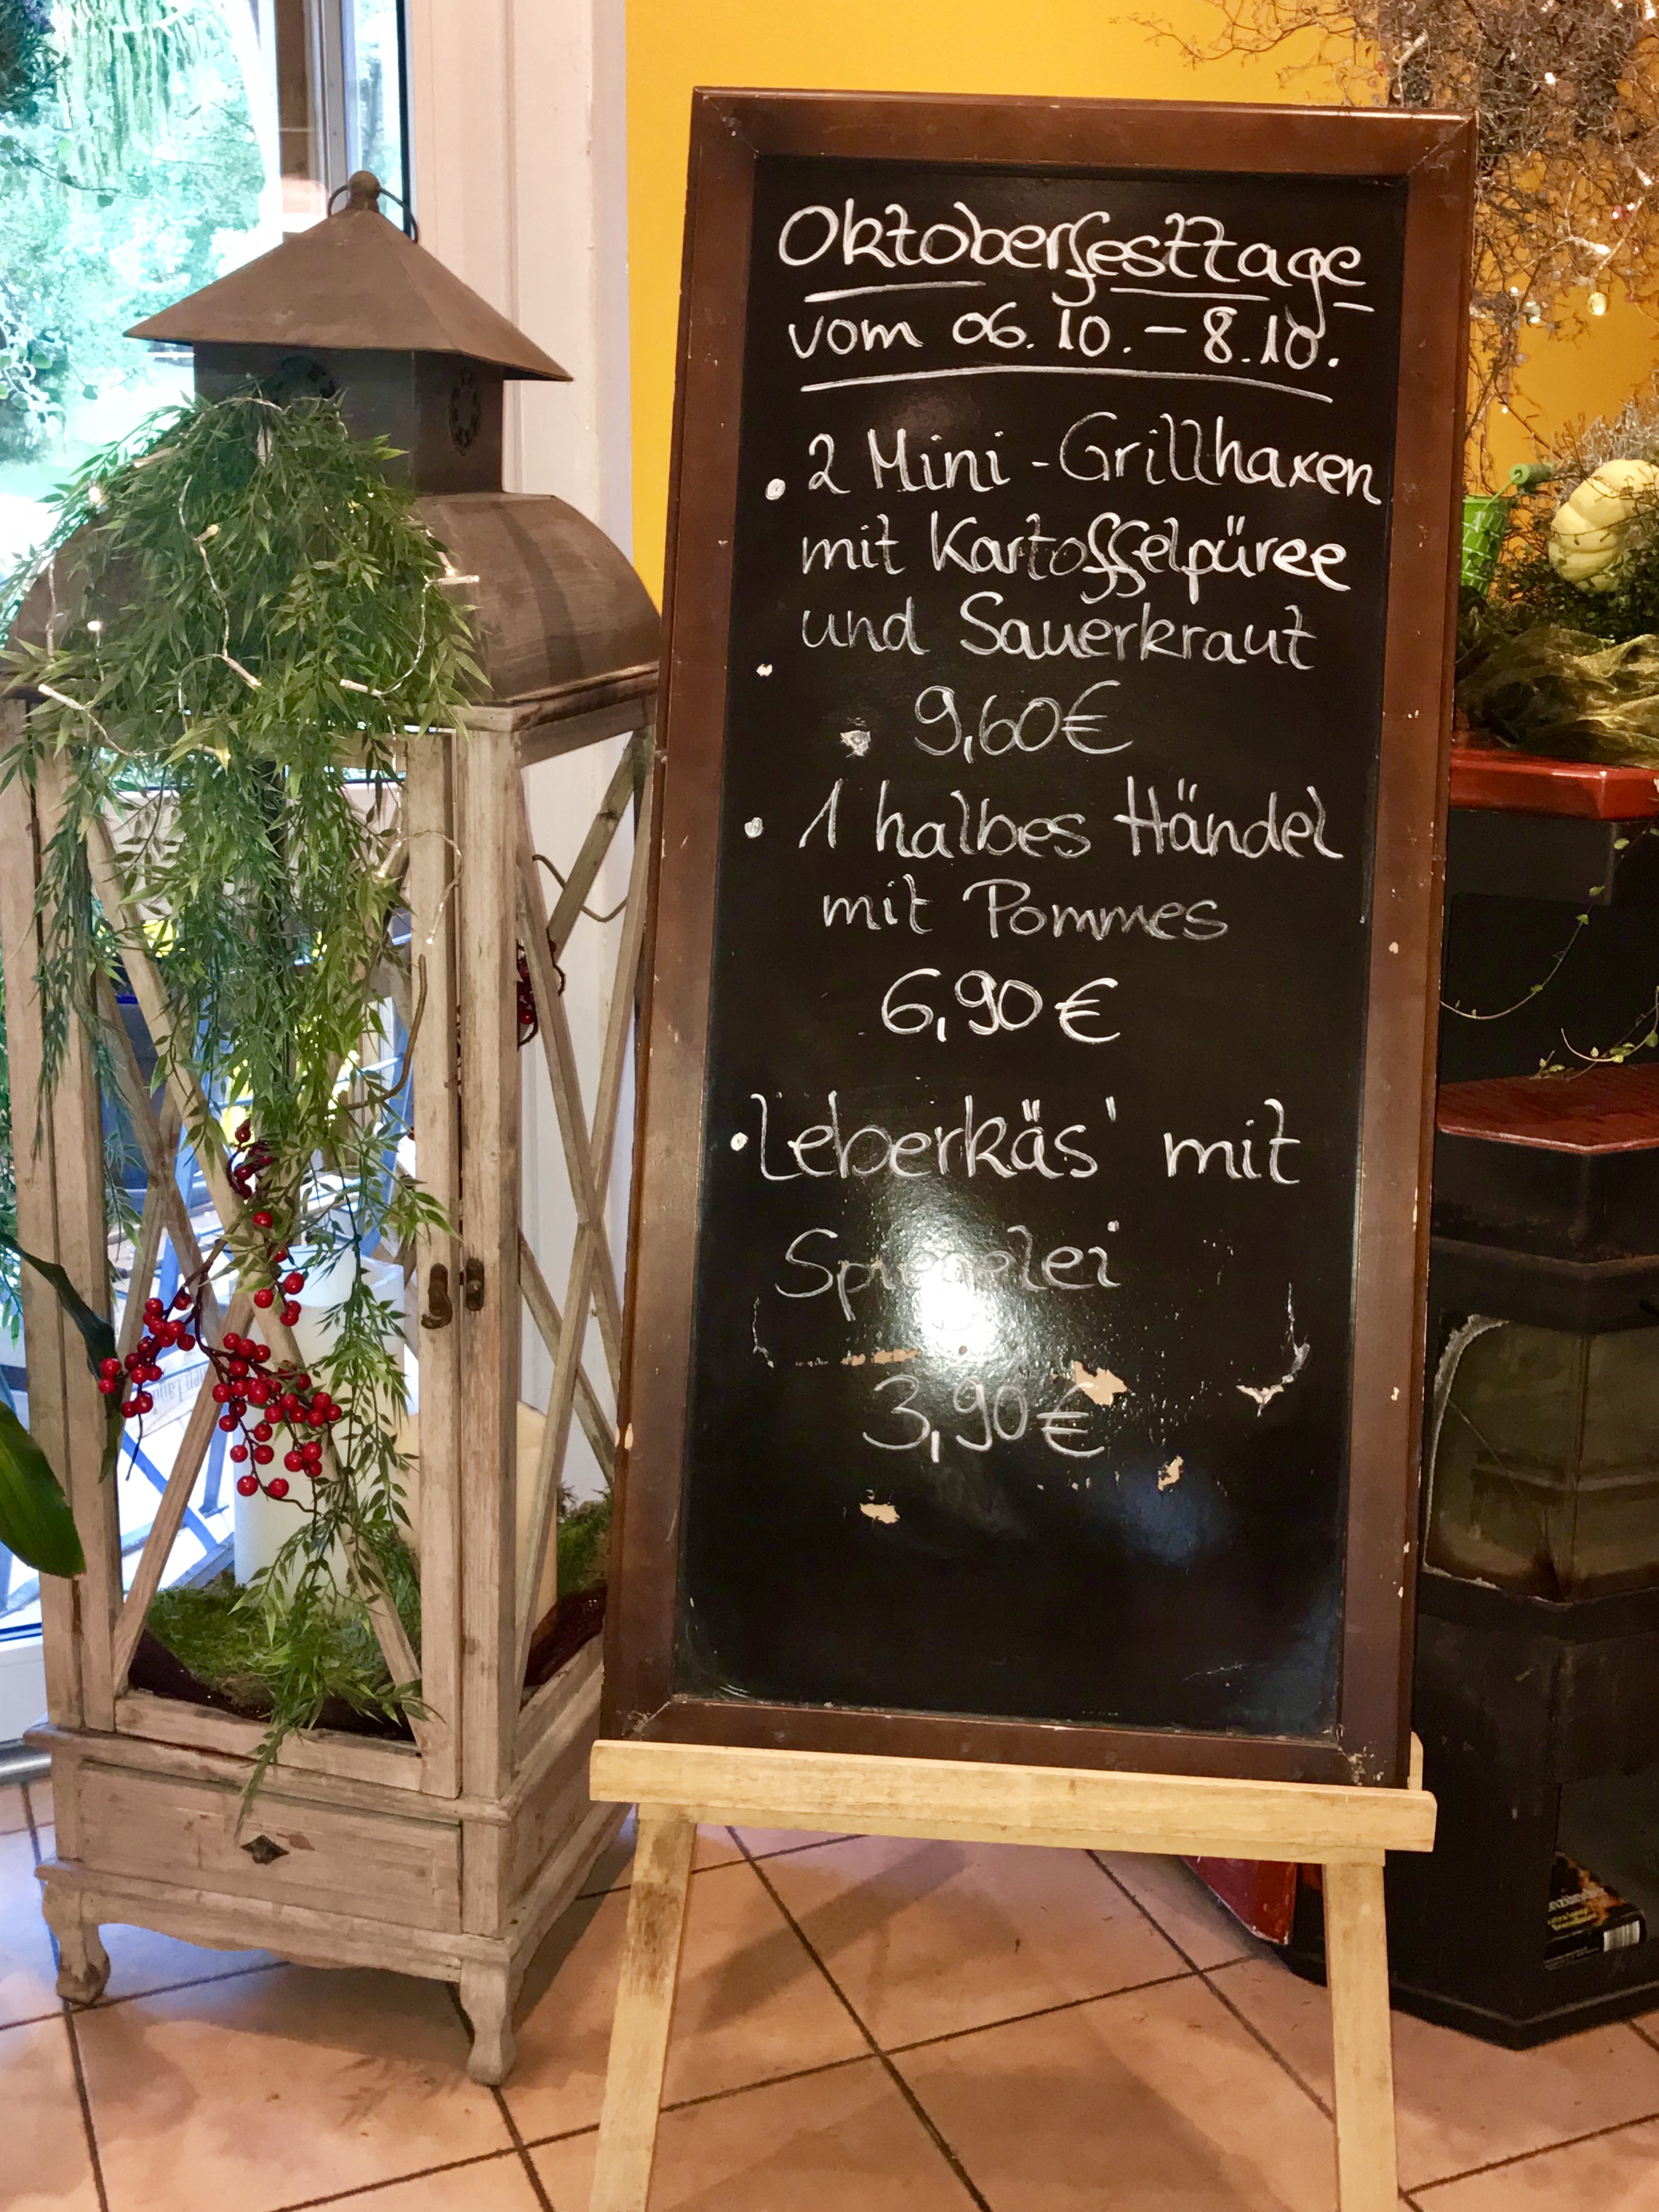 Oktoberfesttage
vom 06.10. – 8.10.
• 2 Mini - Grillhaxen
mit Kartoffelpüree
und Sauerkraut
9,60€
• 1 halbes Händel
mit Pommes
6,90€
• Leberkäs' mit
Spiegelei
3,90€